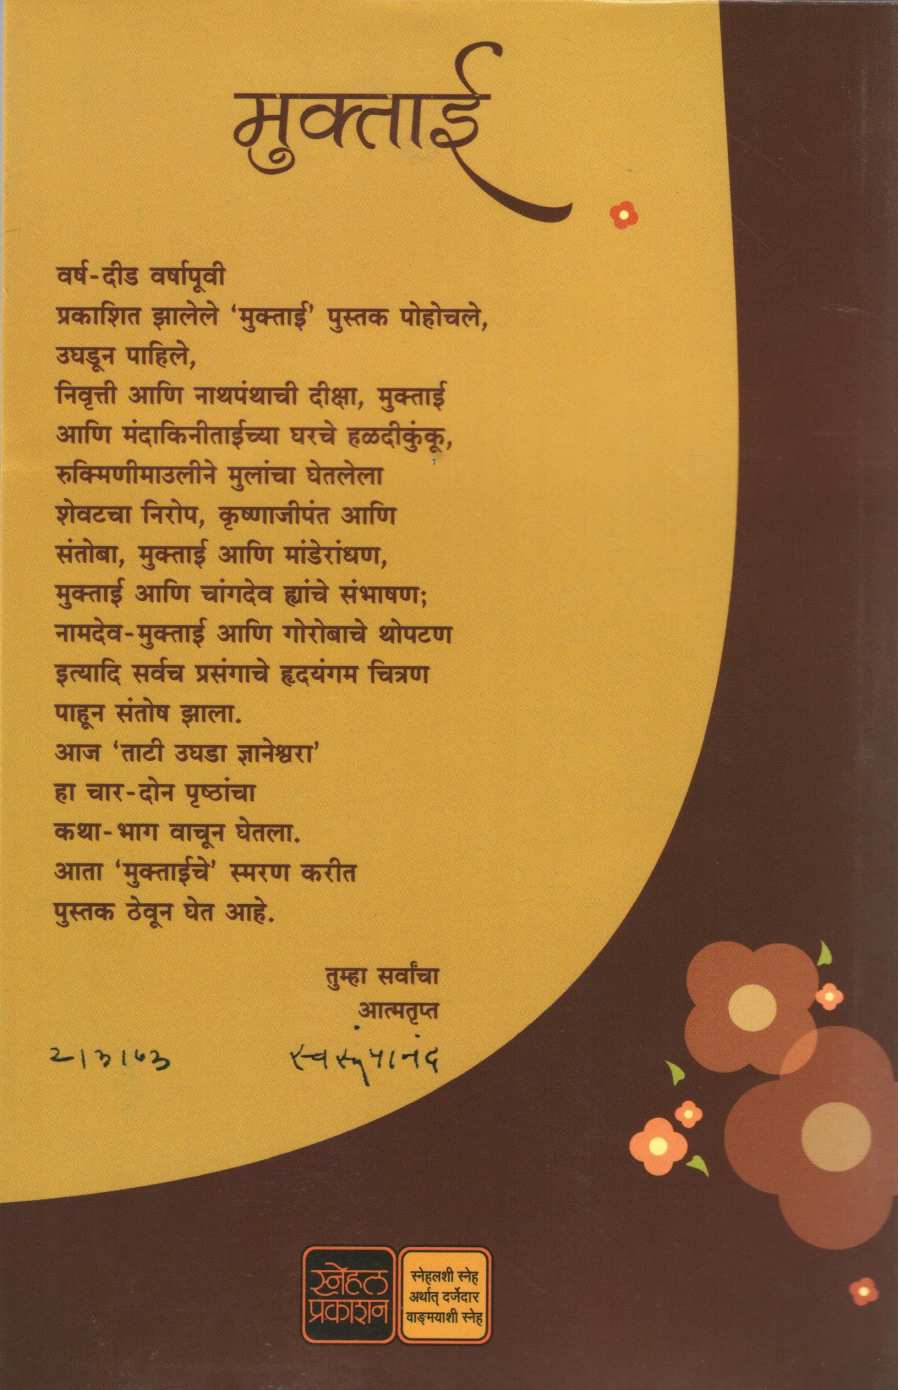 मुक्ताई
वर्ष-दीड वर्षापूवी
प्रकाशित झालेले ‘मुक्ताई’ पुस्तक पोहोचले,
उघडून पाहिले,
निवृत्ती आणि नाथपंथाची दीक्षा, मुक्ताई
आणि मंदाकिनीताईच्या घरचे हळदीकुंकू,
रुक्मिणीमाउलीने मुलांचा घेतलेला
शेवटचा निरोप, कृष्णाजीपंत आणि
संतोबा, मुक्ताई आणि मांडेरांधण,
मुक्ताई आणि चांगदेव ह्यांचे संभाषण;
नामदेव-मुक्ताई आणि गोरोबाचे थोपटण
इत्यादि सर्वच प्रसंगाचे हृदयंगम चित्रण
पाहून संतोष झाला.
आज ‘ताटी उघडा ज्ञानेश्वरा’
हा चार-दोन पृष्ठांचा
कथा-भाग वाचून घेतला.
आता ‘मुक्ताईचे’ स्मरण करीत
पुस्तक ठेवून घेत आहे.
तुम्हा सर्वांचा
आत्मतृप्त
२।३।७३
स्नेहल
प्रकाशन
स्नेहलशी स्नेह
अर्थात् दर्जेदार
वाङ्मयाशी स्नेह